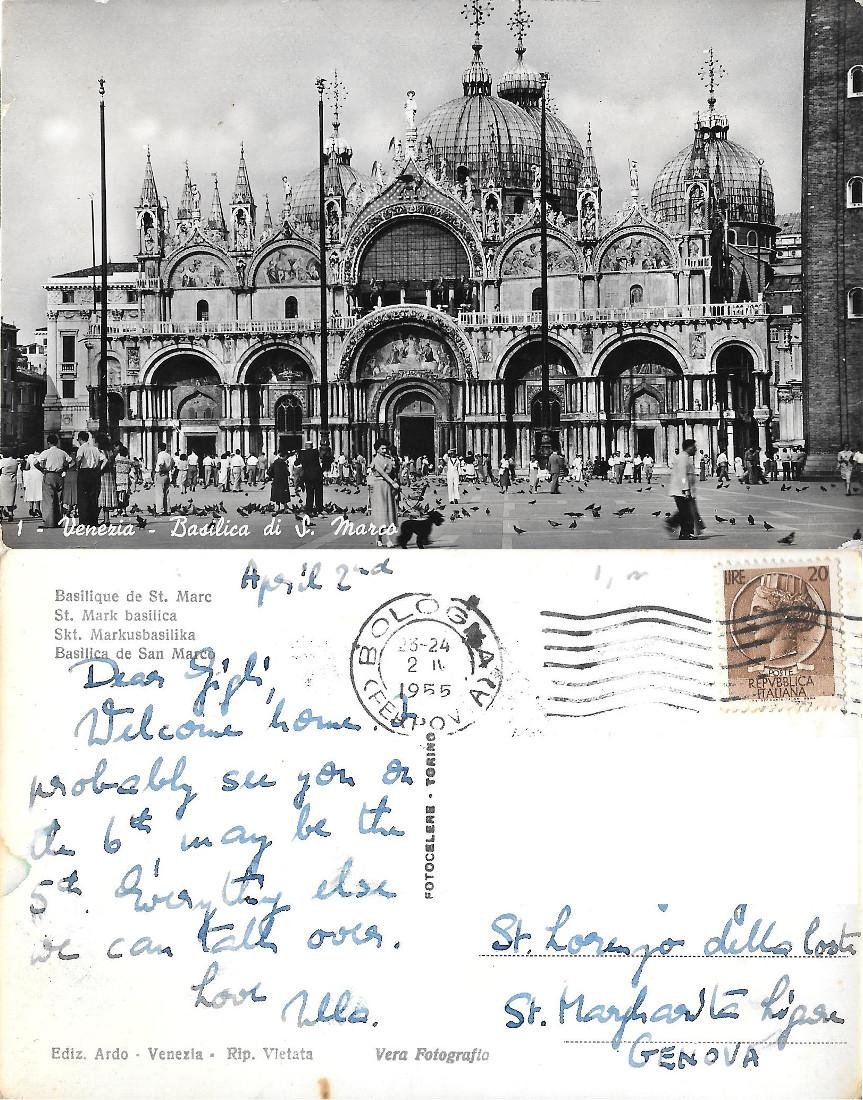 1 - Venezia - Basilica di S. Marco
April 2nd
Basilique de St. Marc
St. Mark basilica
Skt. Markusbasilika
Basilica de San Marco
BOLOGNA
23-24
2 IV
1955
(FERROVIA)
LIRE 20
POSTE
REPVBBLICA
ITALIANA
Dear Gigli,
Welcome home. I
probably see you on
the 6th, may be the
5th. Everything else
we can talk over.
Love
Ulla.
FOTOCELERE - TORINO
St. Lorenzo della Costa
St. Margharita Ligure
GENOVA
Ediz. Ardo - Venezia - Rip. Vietata
Vera Fotografia